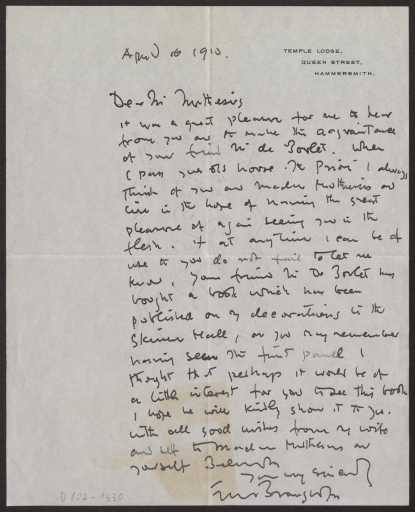 April 16 1910.
TEMPLE LODGE,
QUEEN STREET,
HAMMERSMITH.
Dear Mr Muthesius
it was a great pleasure for me to hear
from you and to make the acquaintance
of your friend Mr de Boslet. When
I pass your old house The Priory I always
think of you and Madm Muthesius and
live in the hope of having the great
pleasure of again seeing you in the
flesh. if at any time I can be of
use to you do not fail to let me
know. Your friend Mr De Boslet has
bought a book which has been
published on my decorations in the
Skinner Hall, as you may remember
having seen the first panel I
thought that perhaps it would be of
a little interest for you to see this book
I hope he will kindly show it to you.
With all good wishes from my wife
and self to Madm Muthesius and
yourself Believe me
yours very sincerely
Frank Brangwyn
D 102-1330